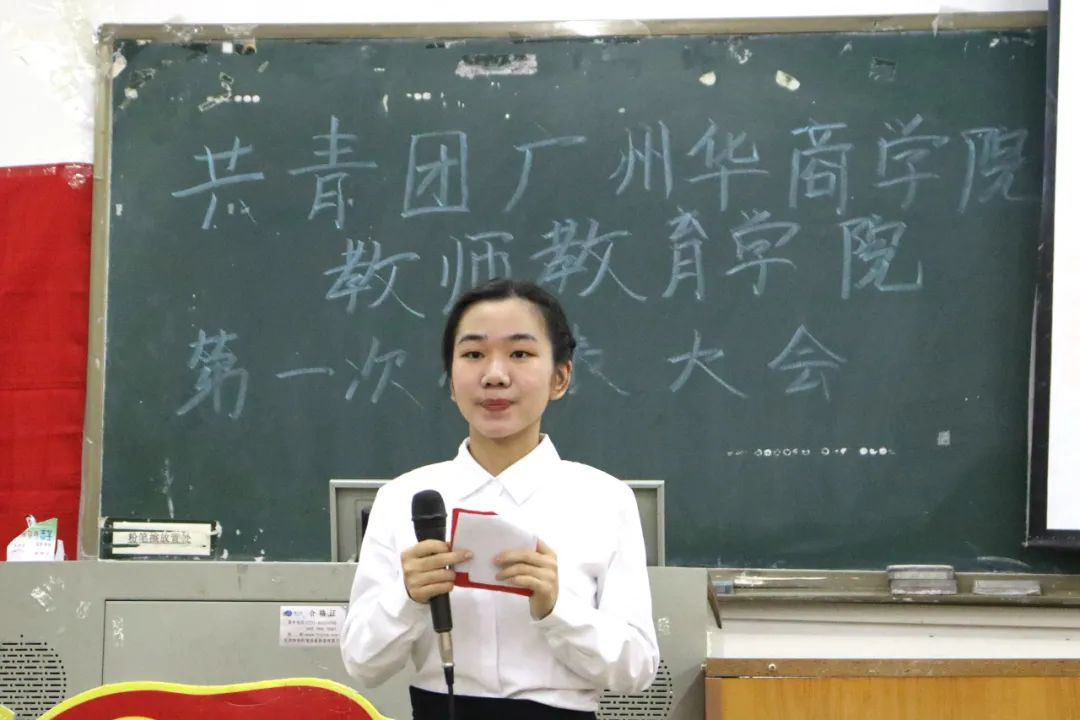 共青团广州华商学院
教师教育学院
第一次代表大会
粉笔擦放置处
合格证